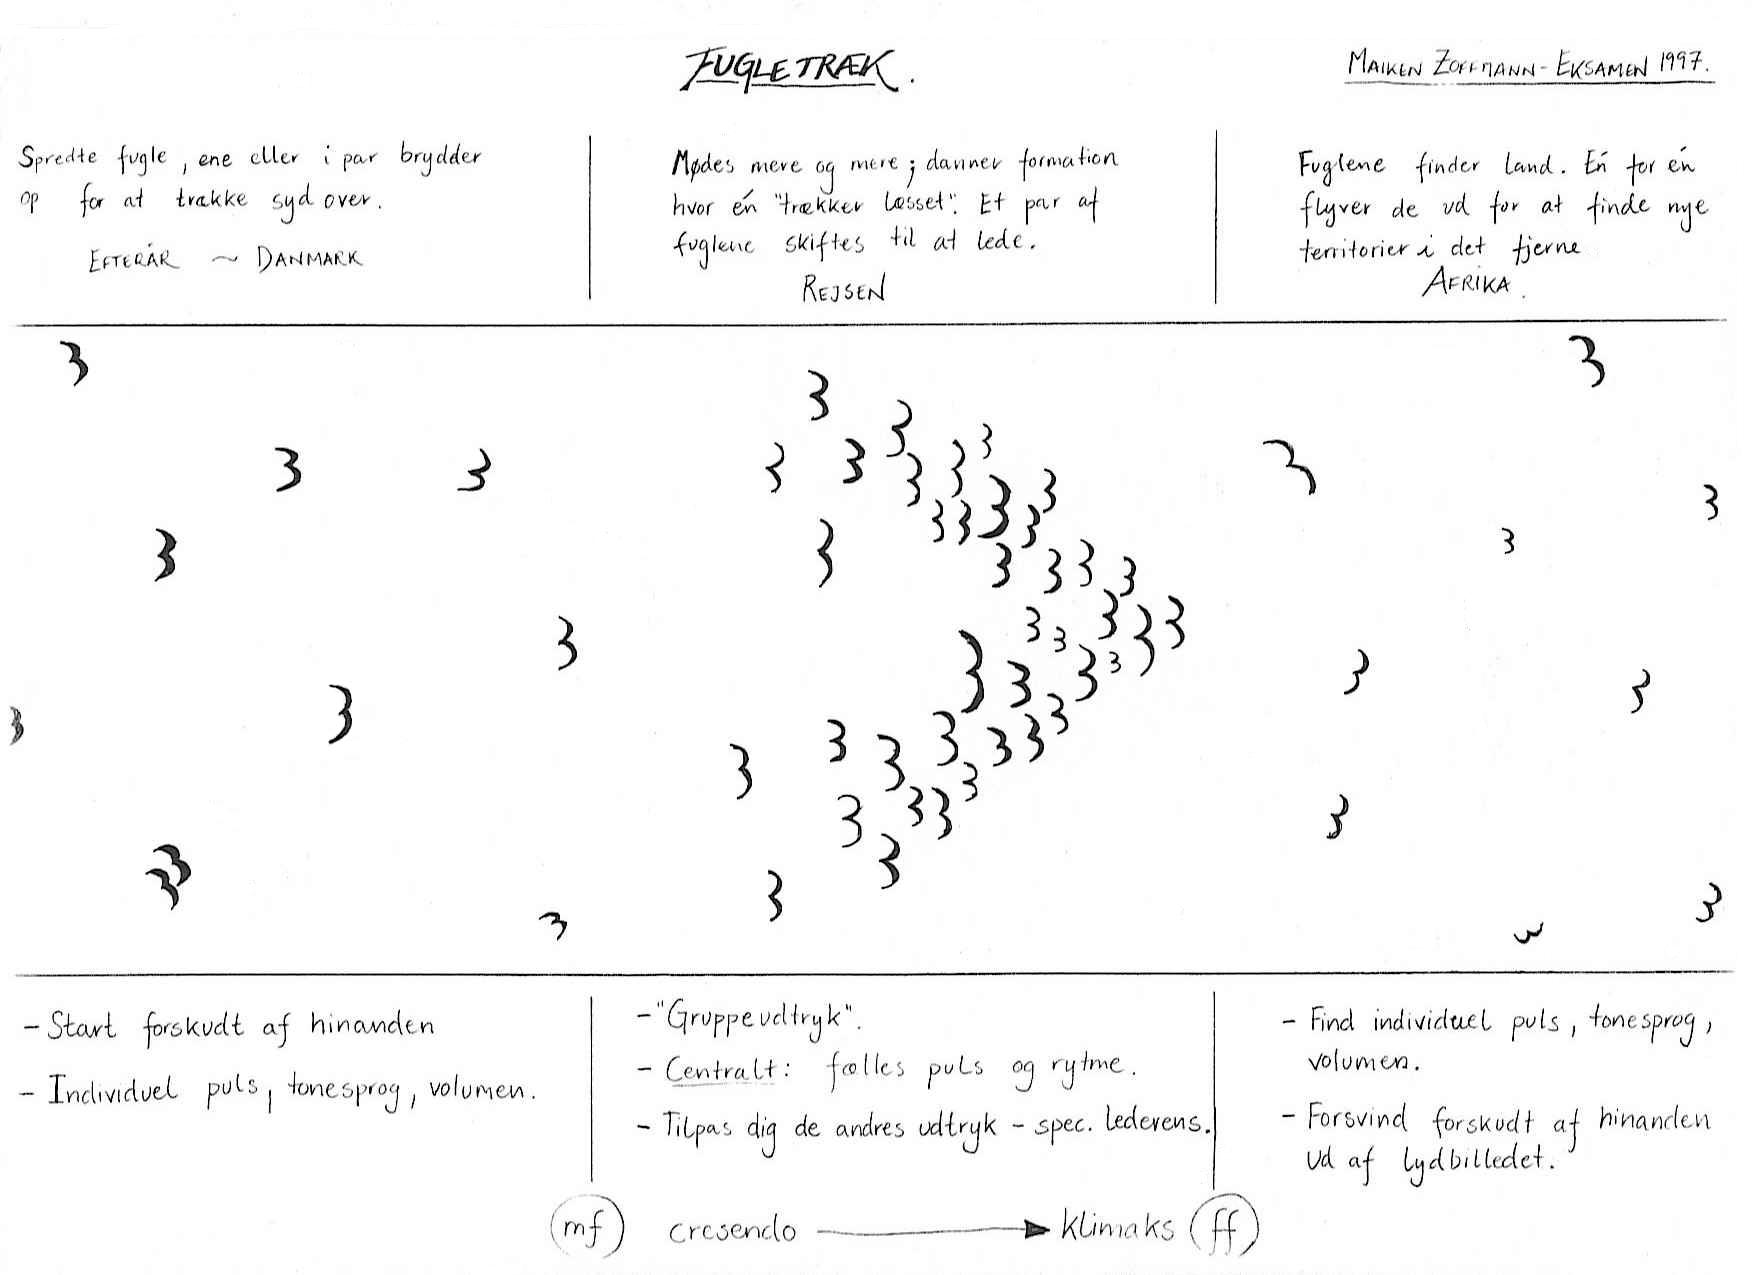 FUGLETRÆK.
MAIKEN ZOFFMANN - EKSAMEN 1997.
Spredte fugle, ene eller i par brydder
op for at trække syd over.
EFTERÅR ~ DANMARK
Mødes mere og mere; danner formation
hvor én "trækker læsset". Et par af
fuglene skiftes til at lede.
REJSEN
Fuglene finder land. Én for én
flyver de ud for at finde nye
territorier i det fjerne
AFRIKA.
- Start forskudt af hinanden
- Individuel puls, tonesprog, volumen.
- "Gruppeudtryk".
- Centralt: fælles puls og rytme.
- Tilpas dig de andres udtryk - spec. lederens.
- Find individuel puls, tonesprog,
volumen.
- Forsvind forskudt af hinanden
ud af lydbilledet.
mf cresendo → klimaks ff